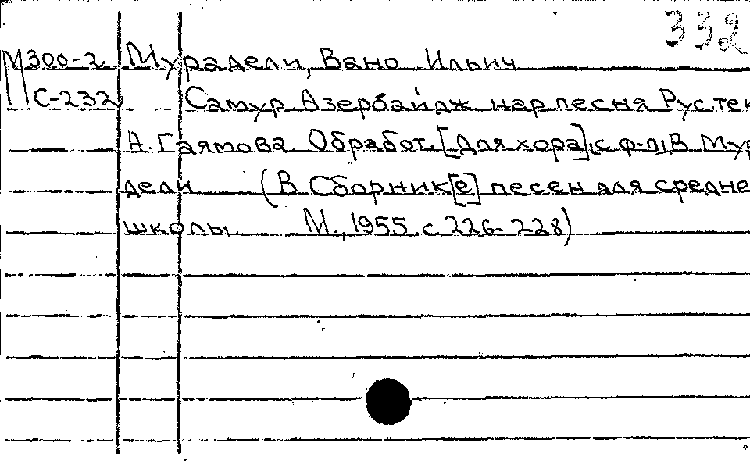 332
М300-2 Мурадели, Вано Ильич
С-232 Самур Азербайдж нар песня Рус тек
А. Гаямова Обработ. [для хора] с ф-п, В Мур
дели (В Сборник[е] песен для средне
школы М., 1955 с 226-228)